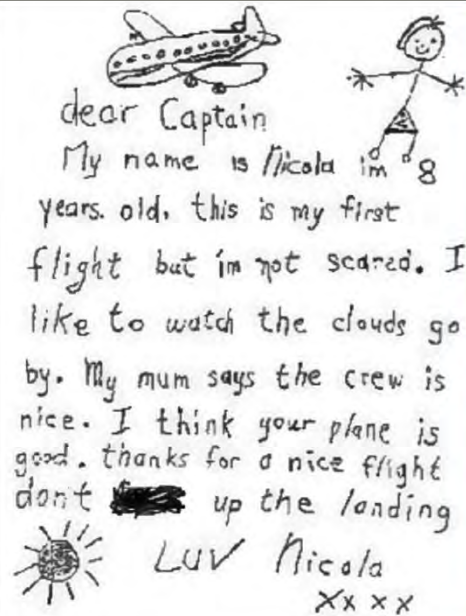 dear Captain
My name is Nicola im 8
years. old. this is my first
flight but im not scared. I
like to watch the clouds go
by. My mum says the crew is
nice. I think your plane is
good. thanks for a nice flight
dont up the landing
LUV Nicola
XXXX